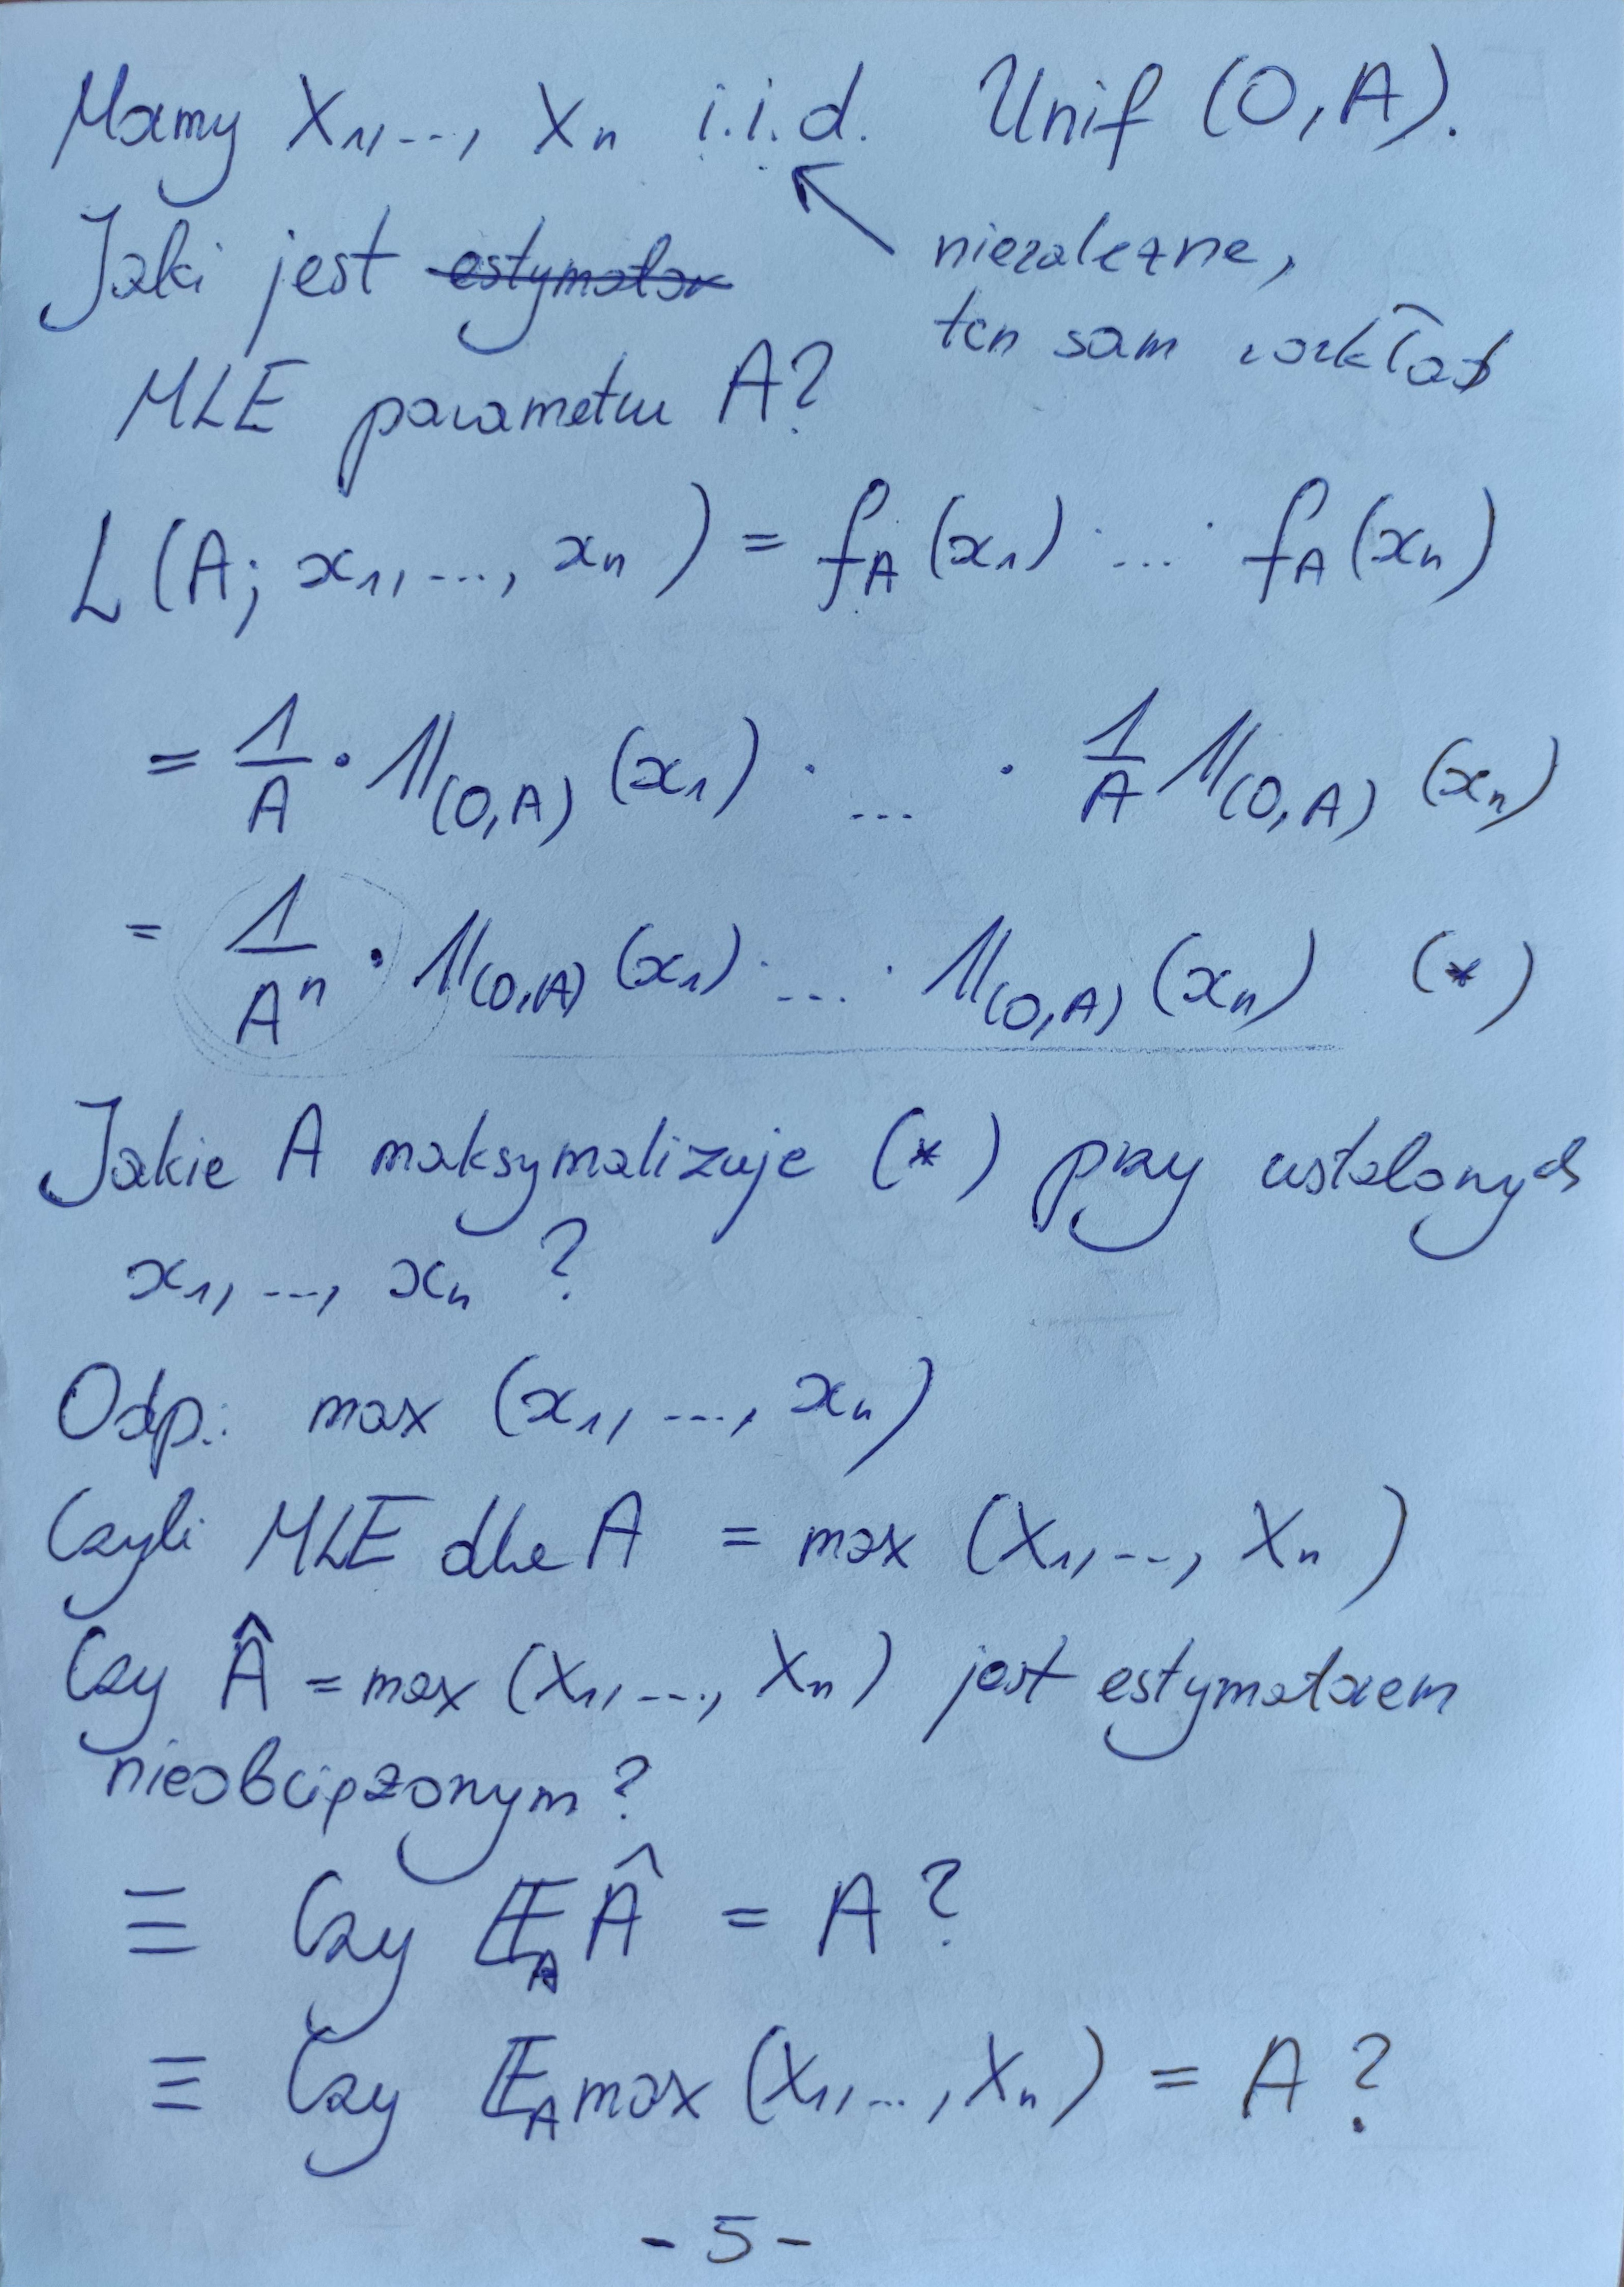 Mamy X₁,..., Xₙ i.i.d. Unif (0,A).
Jaki jest ~~estymator~~
niezależne,
ten sam rozkład
MLE parametru A?
L(A; x₁,..., xₙ) = f_A(x₁) · ... · f_A(xₙ)
= 1/A · 𝟙_(0,A) (x₁) · ... · 1/A 𝟙_(0,A) (xₙ)
= 1/Aⁿ · 𝟙_(0,A) (x₁) · ... · 𝟙_(0,A) (xₙ) (*)
Jakie A maksymalizuje (*) przy ustalonych
x₁,..., xₙ ?
Odp.: max (x₁,..., xₙ)
Czyli MLE dla A = max (X₁,..., Xₙ)
Czy Â = max (X₁,..., Xₙ) jest estymatorem
nieobciążonym?
≡ Czy 𝔼_A Â = A ?
≡ Czy 𝔼_A max (X₁,..., Xₙ) = A ?
- 5 -